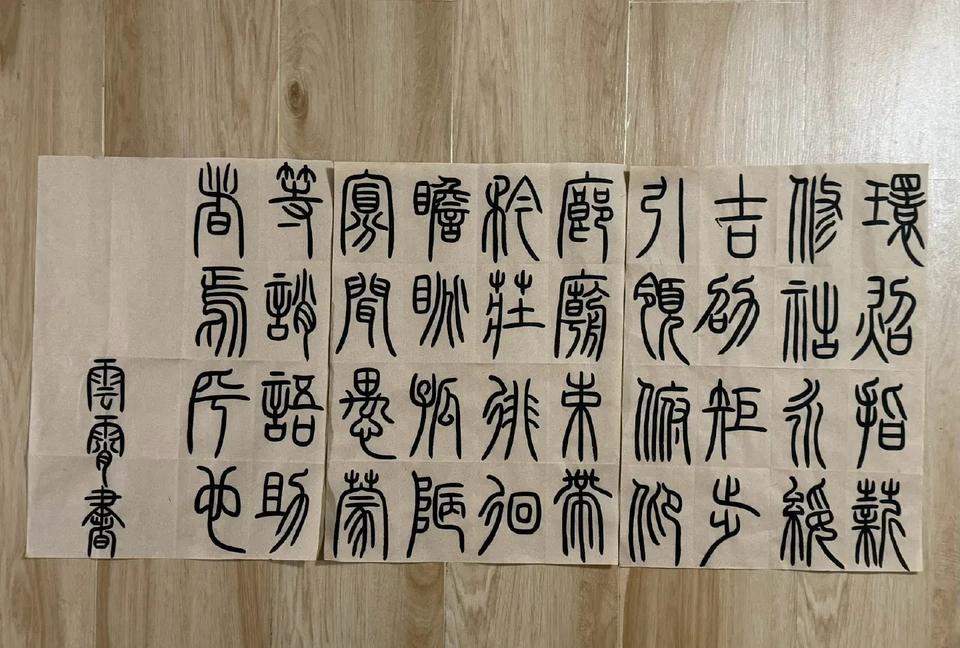 環炤指薪
修祜永綏
吉劭矩步
引領俯仰
廊廟束帶
矜莊徘徊
瞻眺孤陋
寡聞愚蒙
等誚語助
者焉乎也
雲霄書